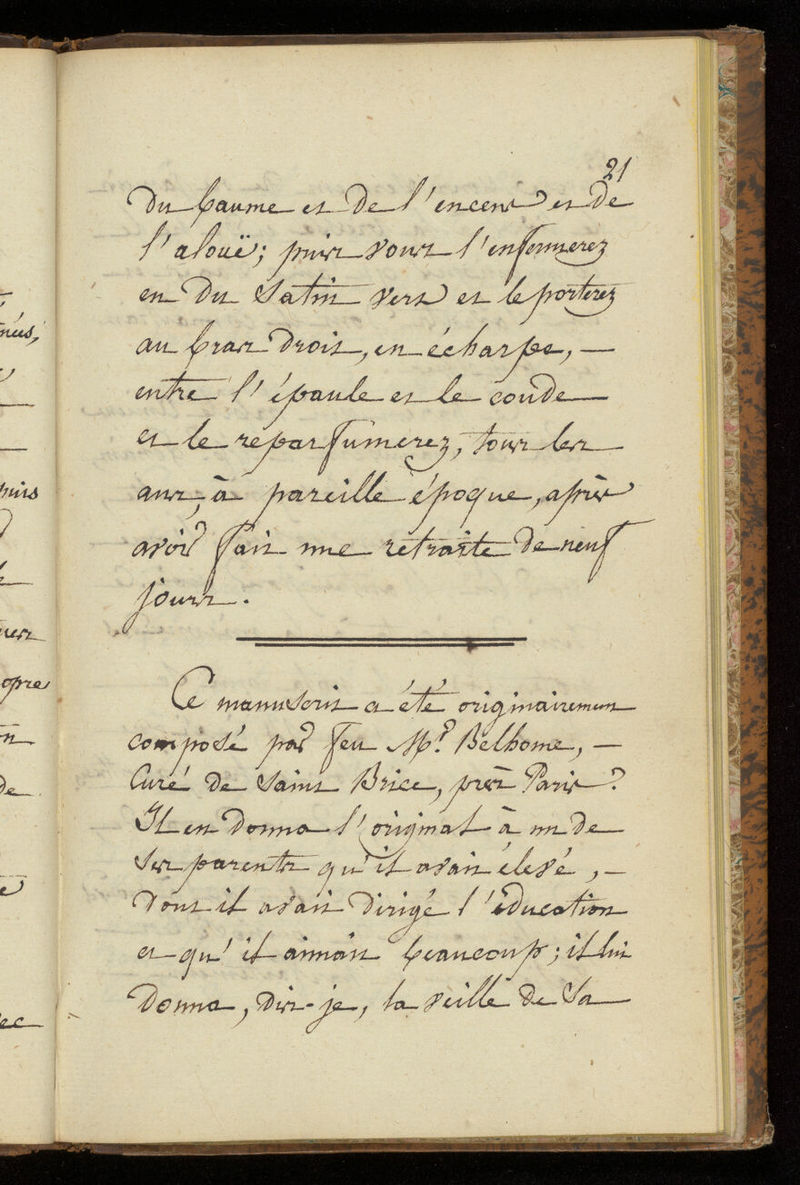 21
Du baume et De l'encens et De
l'alouë; puis vous l'enfermerez
en Du Satin vert et le porterez
au bras Droit, en écharpe, —
entre l'épaule et le coude
et le reparfumerez, tous les
ans, à pareille époque, après
avoir fait une retraite De neuf
jours.
Ce manuscrit a été originairement
composé par feu Mr. Belhome, —
Curé De Saint Brice, près Paris ?
Il en Donna l'original à un De
Ses parents qu'il avait élevé, —
Dont il avait Dirigé l'éducation
et qu'il aimait beaucoup; il lui
Donna, Dis-je, la veille De Sa
nés,
puis
opre
on
De